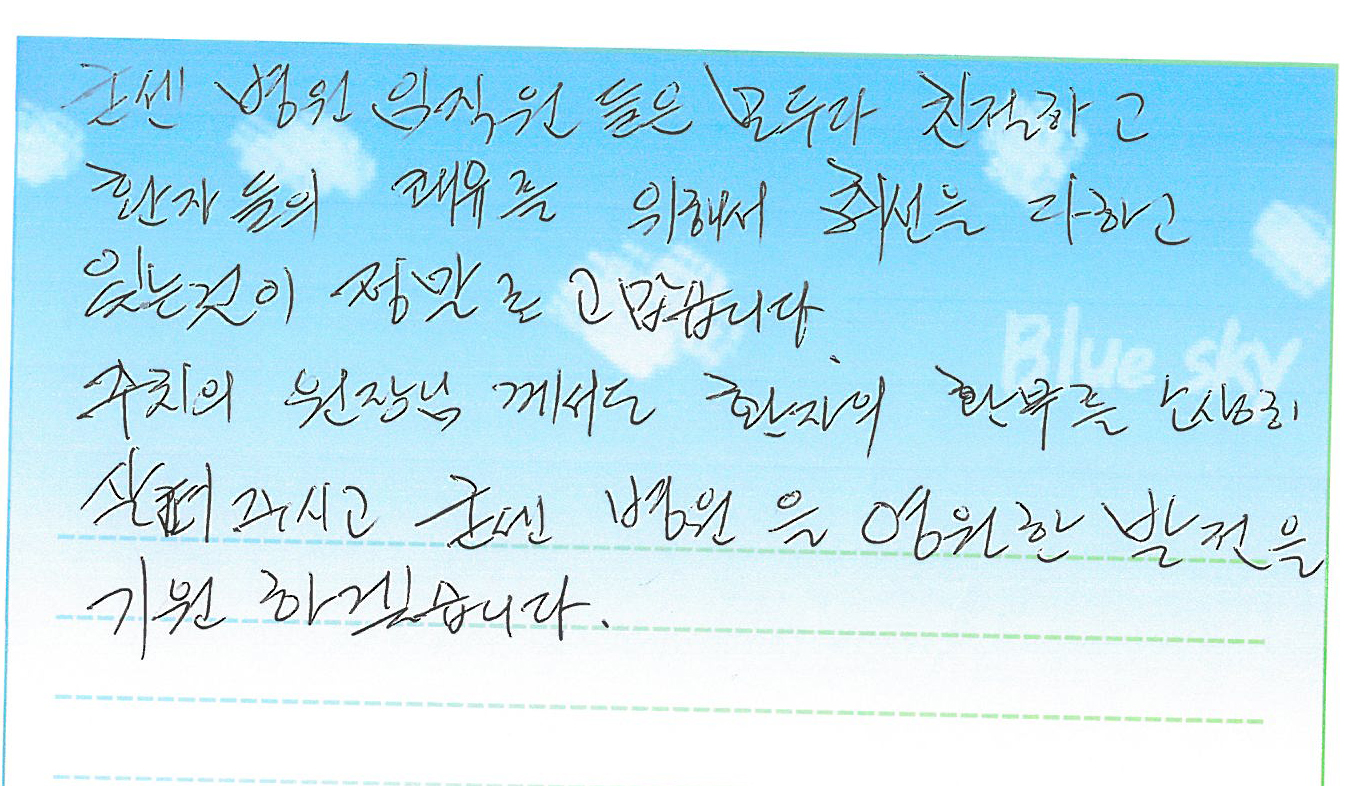 굳센 병원 임직원 들은 모두다 친절하고
환자 들의 쾌유를 위해서 최선을 다하고
있는것이 정말로 고맙습니다.
Blue sky
주치의 원장님 께서도 환자의 환부를
살펴 주시고 굳센 병원 을 영원한 발전을
기원 하겠습니다.